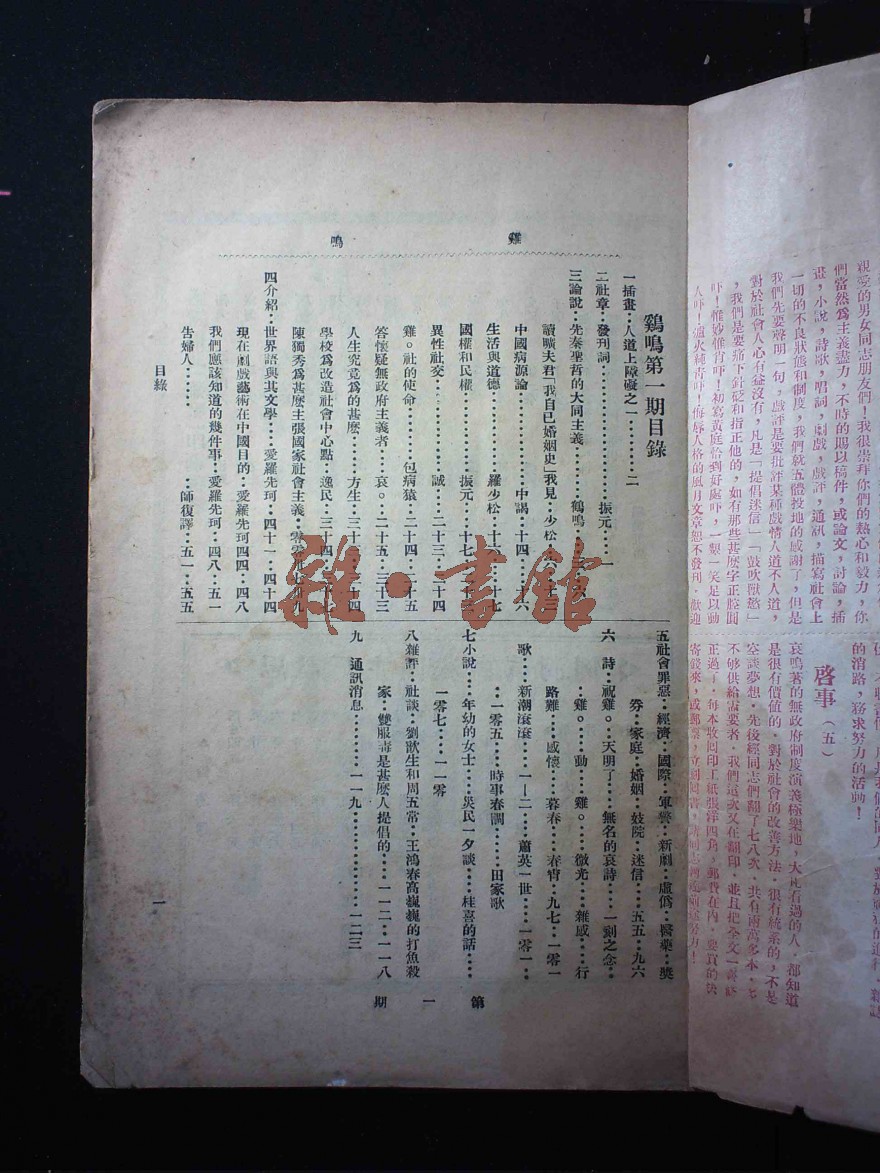 親愛的男女同志朋友們!我很崇拜你們的熱心和毅力,你
們當然為主義盡力,不時的賜以稿件,或論文,討論,插
畫,小說,詩歌,唱詞,劇戲,戲評,通訊,描寫社會上
一切的不良狀態和制度,我們就五體投地的感謝了,但是
我們先要聲明一句,戲評是要批評某種戲情人道不人道,
對於社會人心有益沒有,凡是「提倡迷信」「鼓吹獸慾」
,我們是要痛下針砭和指正他的,如有那些甚麼字正腔圓
吓!惟妙惟肖吓!初寫黃庭恰到好處吓,一顰一笑足以動
人吓!爐火純青吓!侮辱人格的風月文章恕不發刊.歡迎
的消路,務求努力的活動!
啓事(五)
哀鳴著的無政府制度演義極樂地,大凡看過的人.都知道
是很有價值的.對於社會的改善方法.很有統系的,不是
空談夢想.先後經同志們翻了七八次.共有兩萬多本.
不够供給需要者.我們這次又在翻印.並且把全文
正過了.每本收囘印工紙張洋四角,郵費在內.要買的快
寄欵來,
雞鳴
鷄鳴第一期目錄
一插畫:人道上障礙之一………二
二社章:發刊詞………振元…一
三論說:先秦聖哲的大同主義……鶴鳴…
讀曠夫君「我自己婚姻史」我見:少松
中國病源論………中謁:十四
生活與道德………羅少松:十
國權和民權………振元…十七
異性社交………誠…二十三…二十四
雞。社的使命………包病猿…二十四…二十五
答懷疑無政府主義者…哀。二十五:三十三
人生究竟為的甚麽……方生:三十
學校為改造社會中心點:逸民:三十四
陳獨秀為甚麽主張國家社會主義:
四介紹:世界語與其文學…愛羅先珂:四十一:四十四
現在劇戲藝術在中國目的:愛羅先珂四四:四八
我們應該知道的幾件事:愛羅先珂:四八:五一
告婦人……師復譯:五一:五五
目錄
五社會罪惡:經濟:國際:軍警:新劇:虛僞:醫藥:獎
券:家庭:婚姻:妓院:迷信:五五:九六
六 詩:祝雞。:天明了……無名的哀詩…一剎之念:
:雞。:動…雞。:微光:雜感…行
路難…感懷…暮春…春宵:九七:一零一
歌:新潮滾滾…一—二…蕭英一世……一零一:
:一零五……時事春調……田家歌
七小說……年幼的女士…吳民一夕談…桂喜的話……
一零七……一一零
八雜評:社談:劉獻生和周五常:王鴻春高巍巍的打魚殺
家:雙服毒是甚麽人提倡的…一一二:一一八
九 通訊消息………一一九………一二三
第一期
一
雜·書館